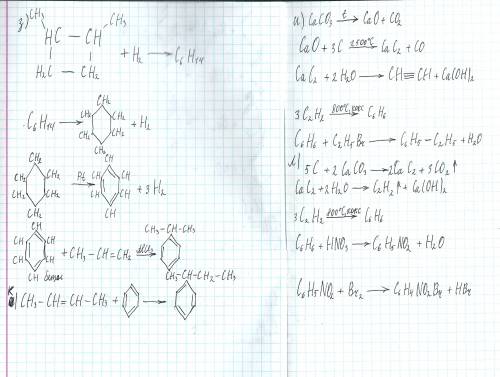 з) CH₃ CH₃
HC – CH
+ H₂ → C₆H₁₄
H₂C – CH₂
C₆H₁₄ → CH₂ CH₂ CH₂ CH₂ CH₂ CH₂ + H₂
CH₂ CH₂ CH₂ CH₂ CH₂ CH₂ Pt → CH CH CH CH CH CH + 3H₂
CH CH CH CH CH CH бензол + CH₃ – CH = CH₂ AlCl₃ → CH₃ – CH – CH₃
к) CH₃ – CH = CH – CH₃ + → CH₃ – CH – CH₂ – CH₃
и) CaCO₃ t → CaO + CO₂
CaO + 3C 2500°C → CaC₂ + CO
CaC₂ + 2H₂O → CH ≡ CH + Ca(OH)₂
3C₂H₂ → C₆H₆
C₆H₆ + C₂H₅Br → C₆H₅ – C₂H₅ + H₂O
л) 5C + 2CaCO₃ → 2CaC₂ + 3CO₂↑
CaC₂ + 2H₂O → C₂H₂↑ + Ca(OH)₂
3C₂H₂ → C₆H₆
C₆H₆ + HNO₃ → C₆H₅NO₂ + H₂O
C₆H₅NO₂ + Br₂ → C₆H₄NO₂Br + HBr